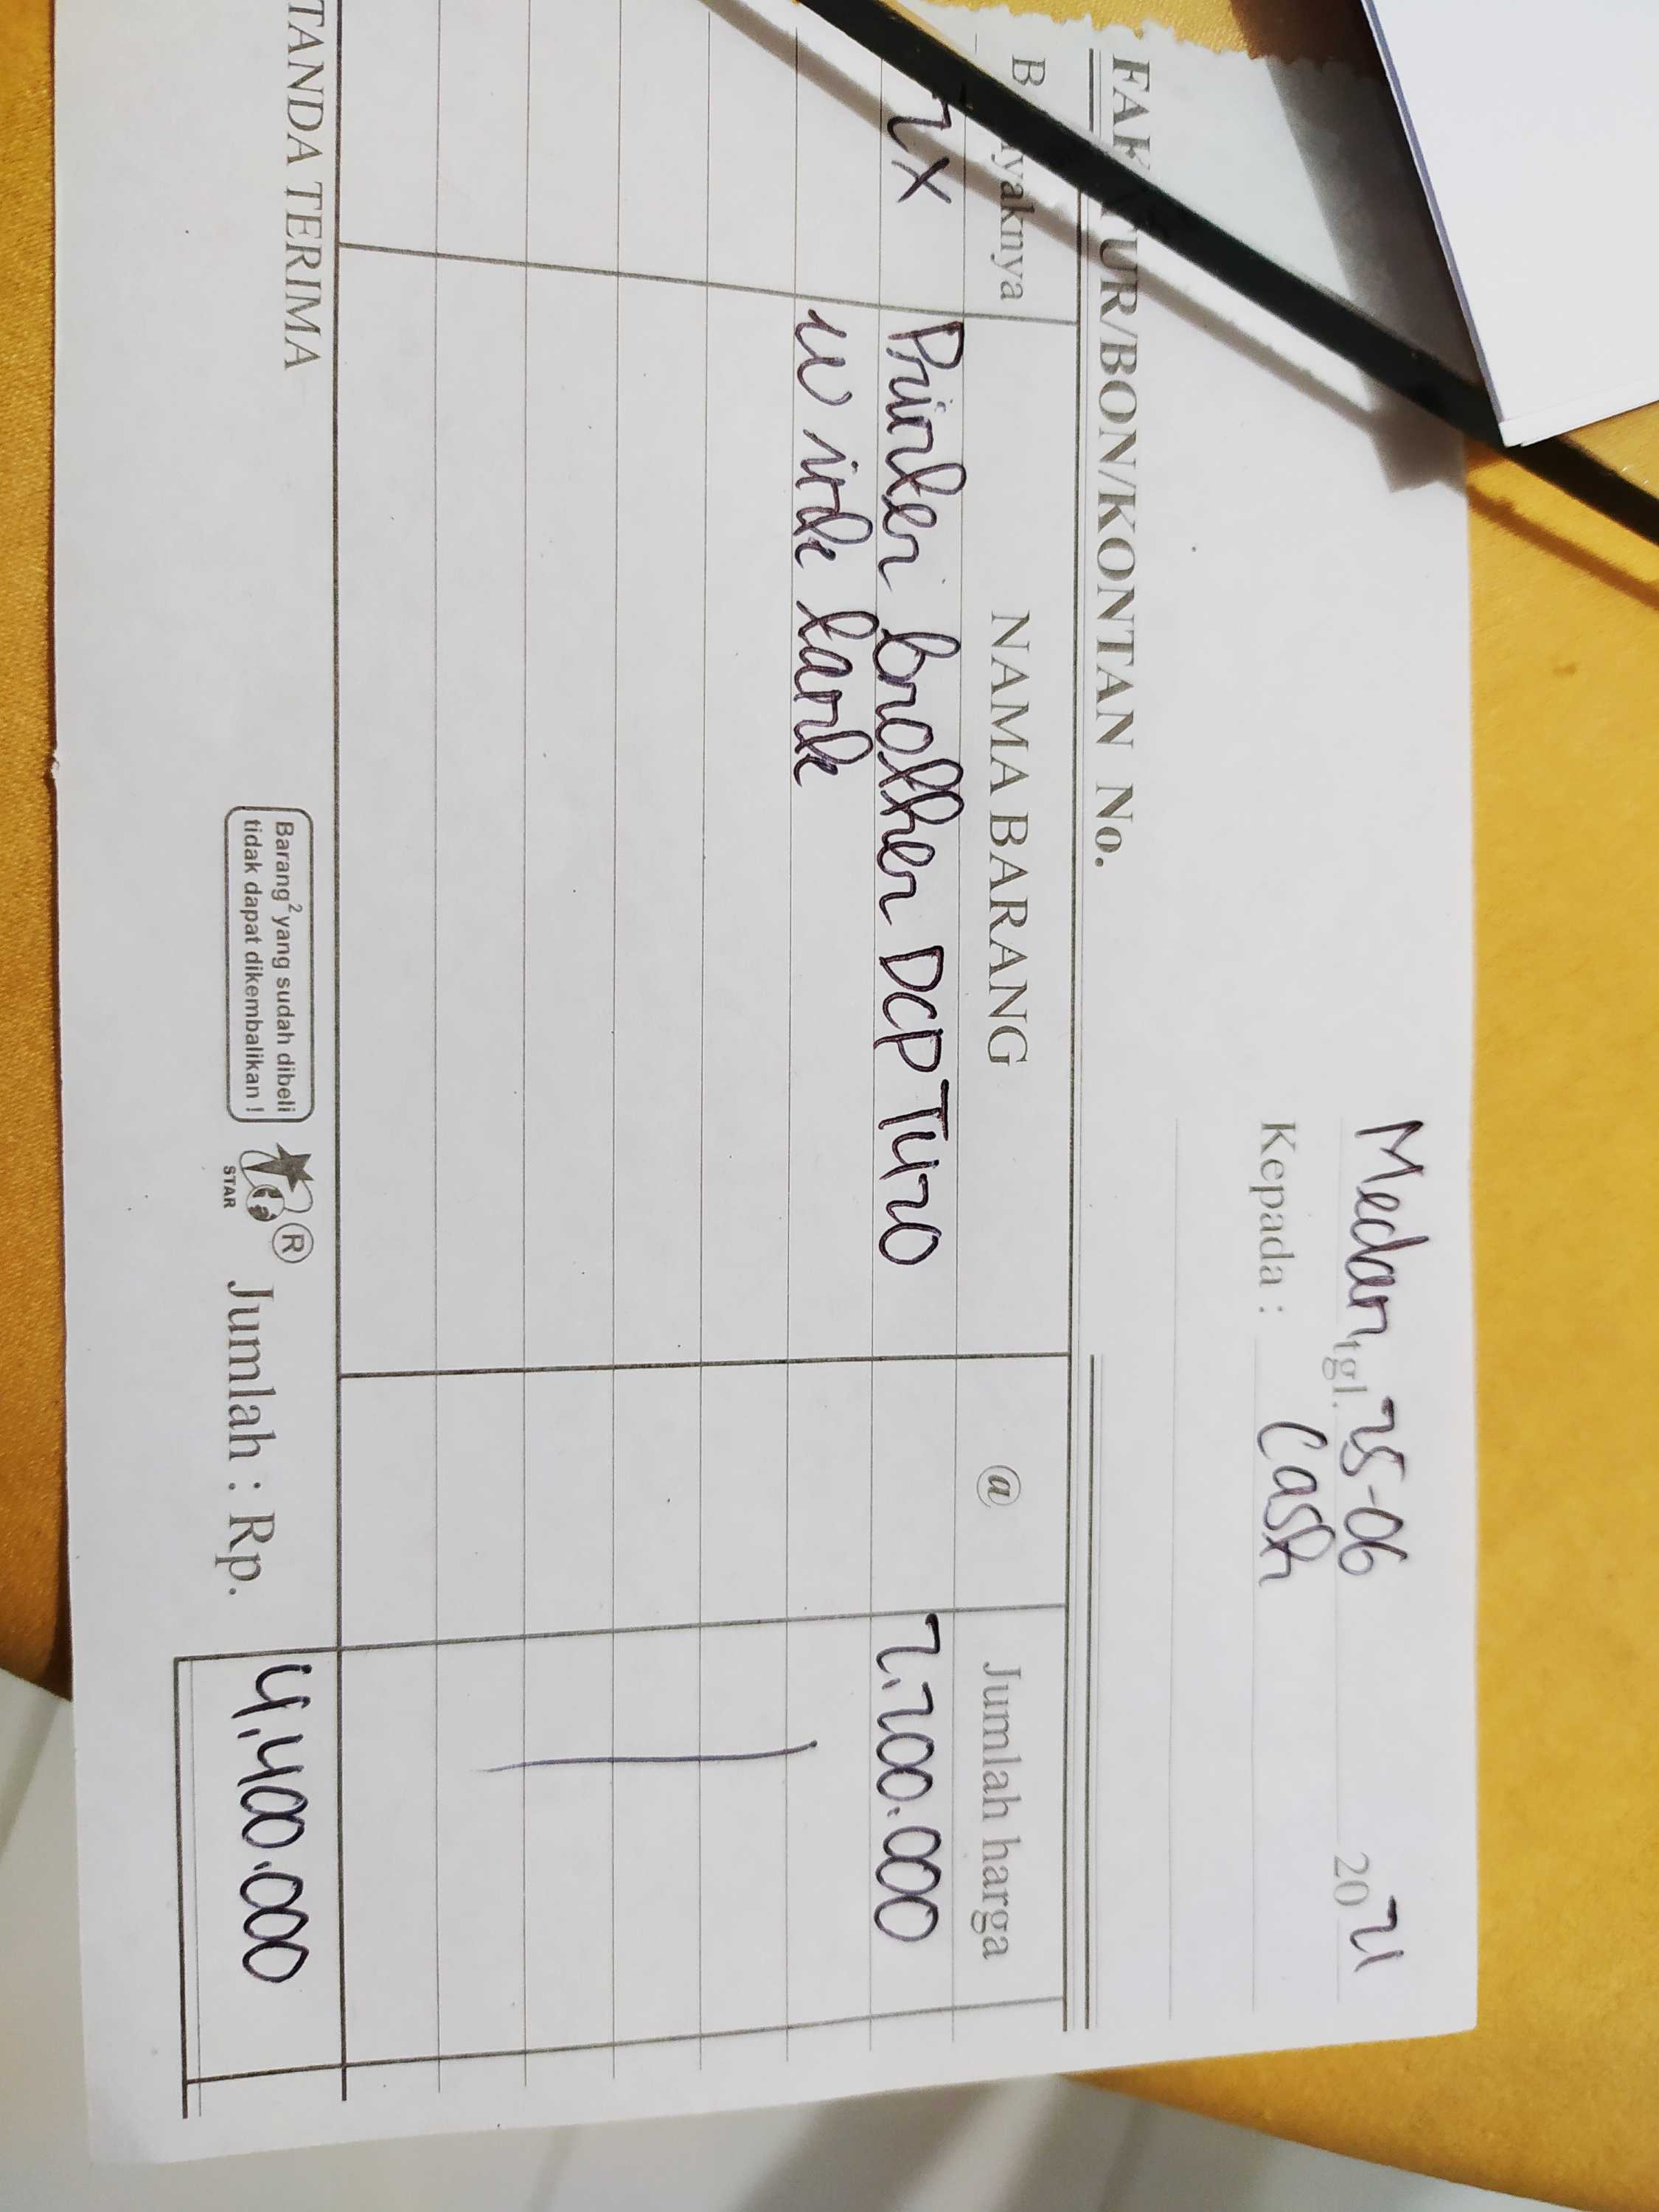 Medan, tgl. 25-06 2021
Kepada : Cash
FAKTUR/BON/KONTAN No.
Banyaknya NAMA BARANG @ Jumlah harga
2X Printer brother DCP T420 2.200.000
W ink tank
TANDA TERIMA
Barang² yang sudah dibeli
tidak dapat dikembalikan !
STAR
®
Jumlah : Rp. 4.400.000